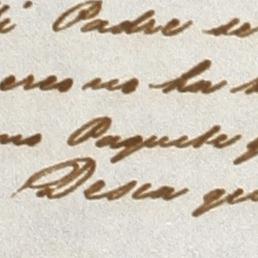 i Padre se
ereo no ha s
no Paquete q
Desea que